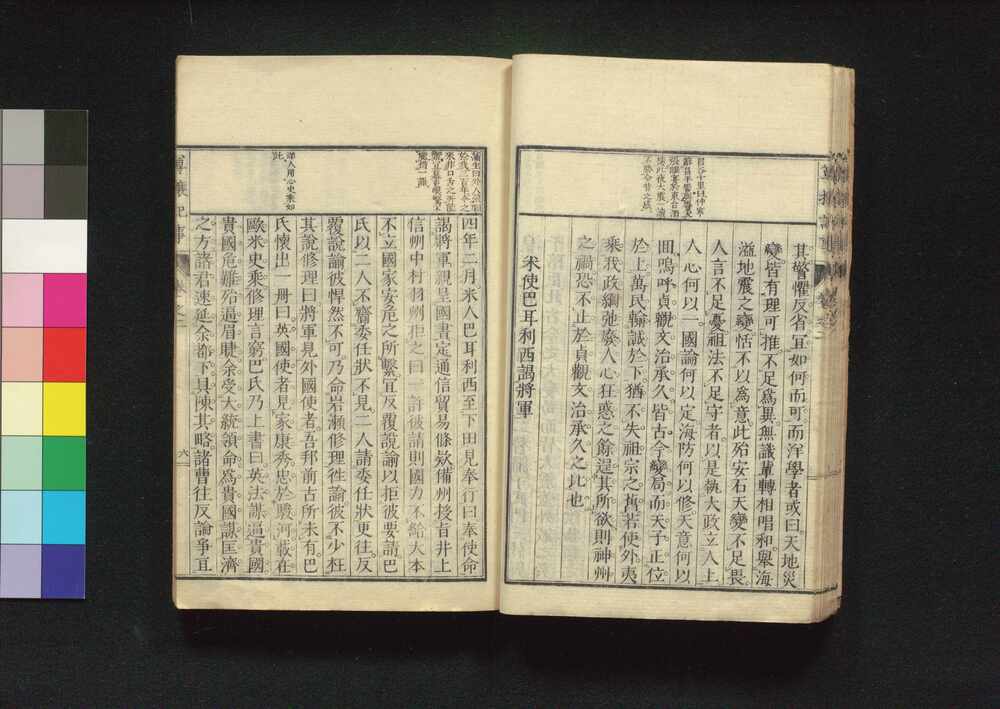 其警懼反省宜如何而可而洋學者或曰天地災
變皆有理可推不足爲異無識輩轉相唱和舉海
溢地震之變恬不以爲意此殆安石天變不足畏
人言不足憂祖法不足守者以是執大政立人上
人心何以一國論何以定海防何以修天意何以
囘嗚呼貞觀文治承久皆古今變局而天子正位
於上萬民輸誠於下猶不失祖宗之舊若使外夷
乘我政綱弛廢人心狂惑之餘逞其所欲則神州
之禍恐不止於貞觀文治承久之比也
米使巴耳利西謁將軍
四年二月米人巴耳利西至下田見奉行曰奉使命
謁將軍親呈國書定通信貿易條欵備州授旨井上
信州中村羽州拒之曰一許彼請則國力不給大本
不立國家安危之所繫宜反覆說諭以拒彼要請巴
氏以二人不齎委任狀不見二人請委任狀更往反
覆說諭彼悍然不可乃命岩瀨修理徃諭彼不少枉
其說修理曰將軍見外國使者吾邦前古所未有巴
氏懷出一冊曰英國使者見家康秀忠於駿河載在
歐米史乘修理言窮巴氏乃上書曰英法謀逼貴國
貴國危難殆逼眉睫余受大統領命爲貴國謀匡濟
之方諸君速延余都下具陳其略諸曹往反論爭亘
尊攘紀事
卷之二
六